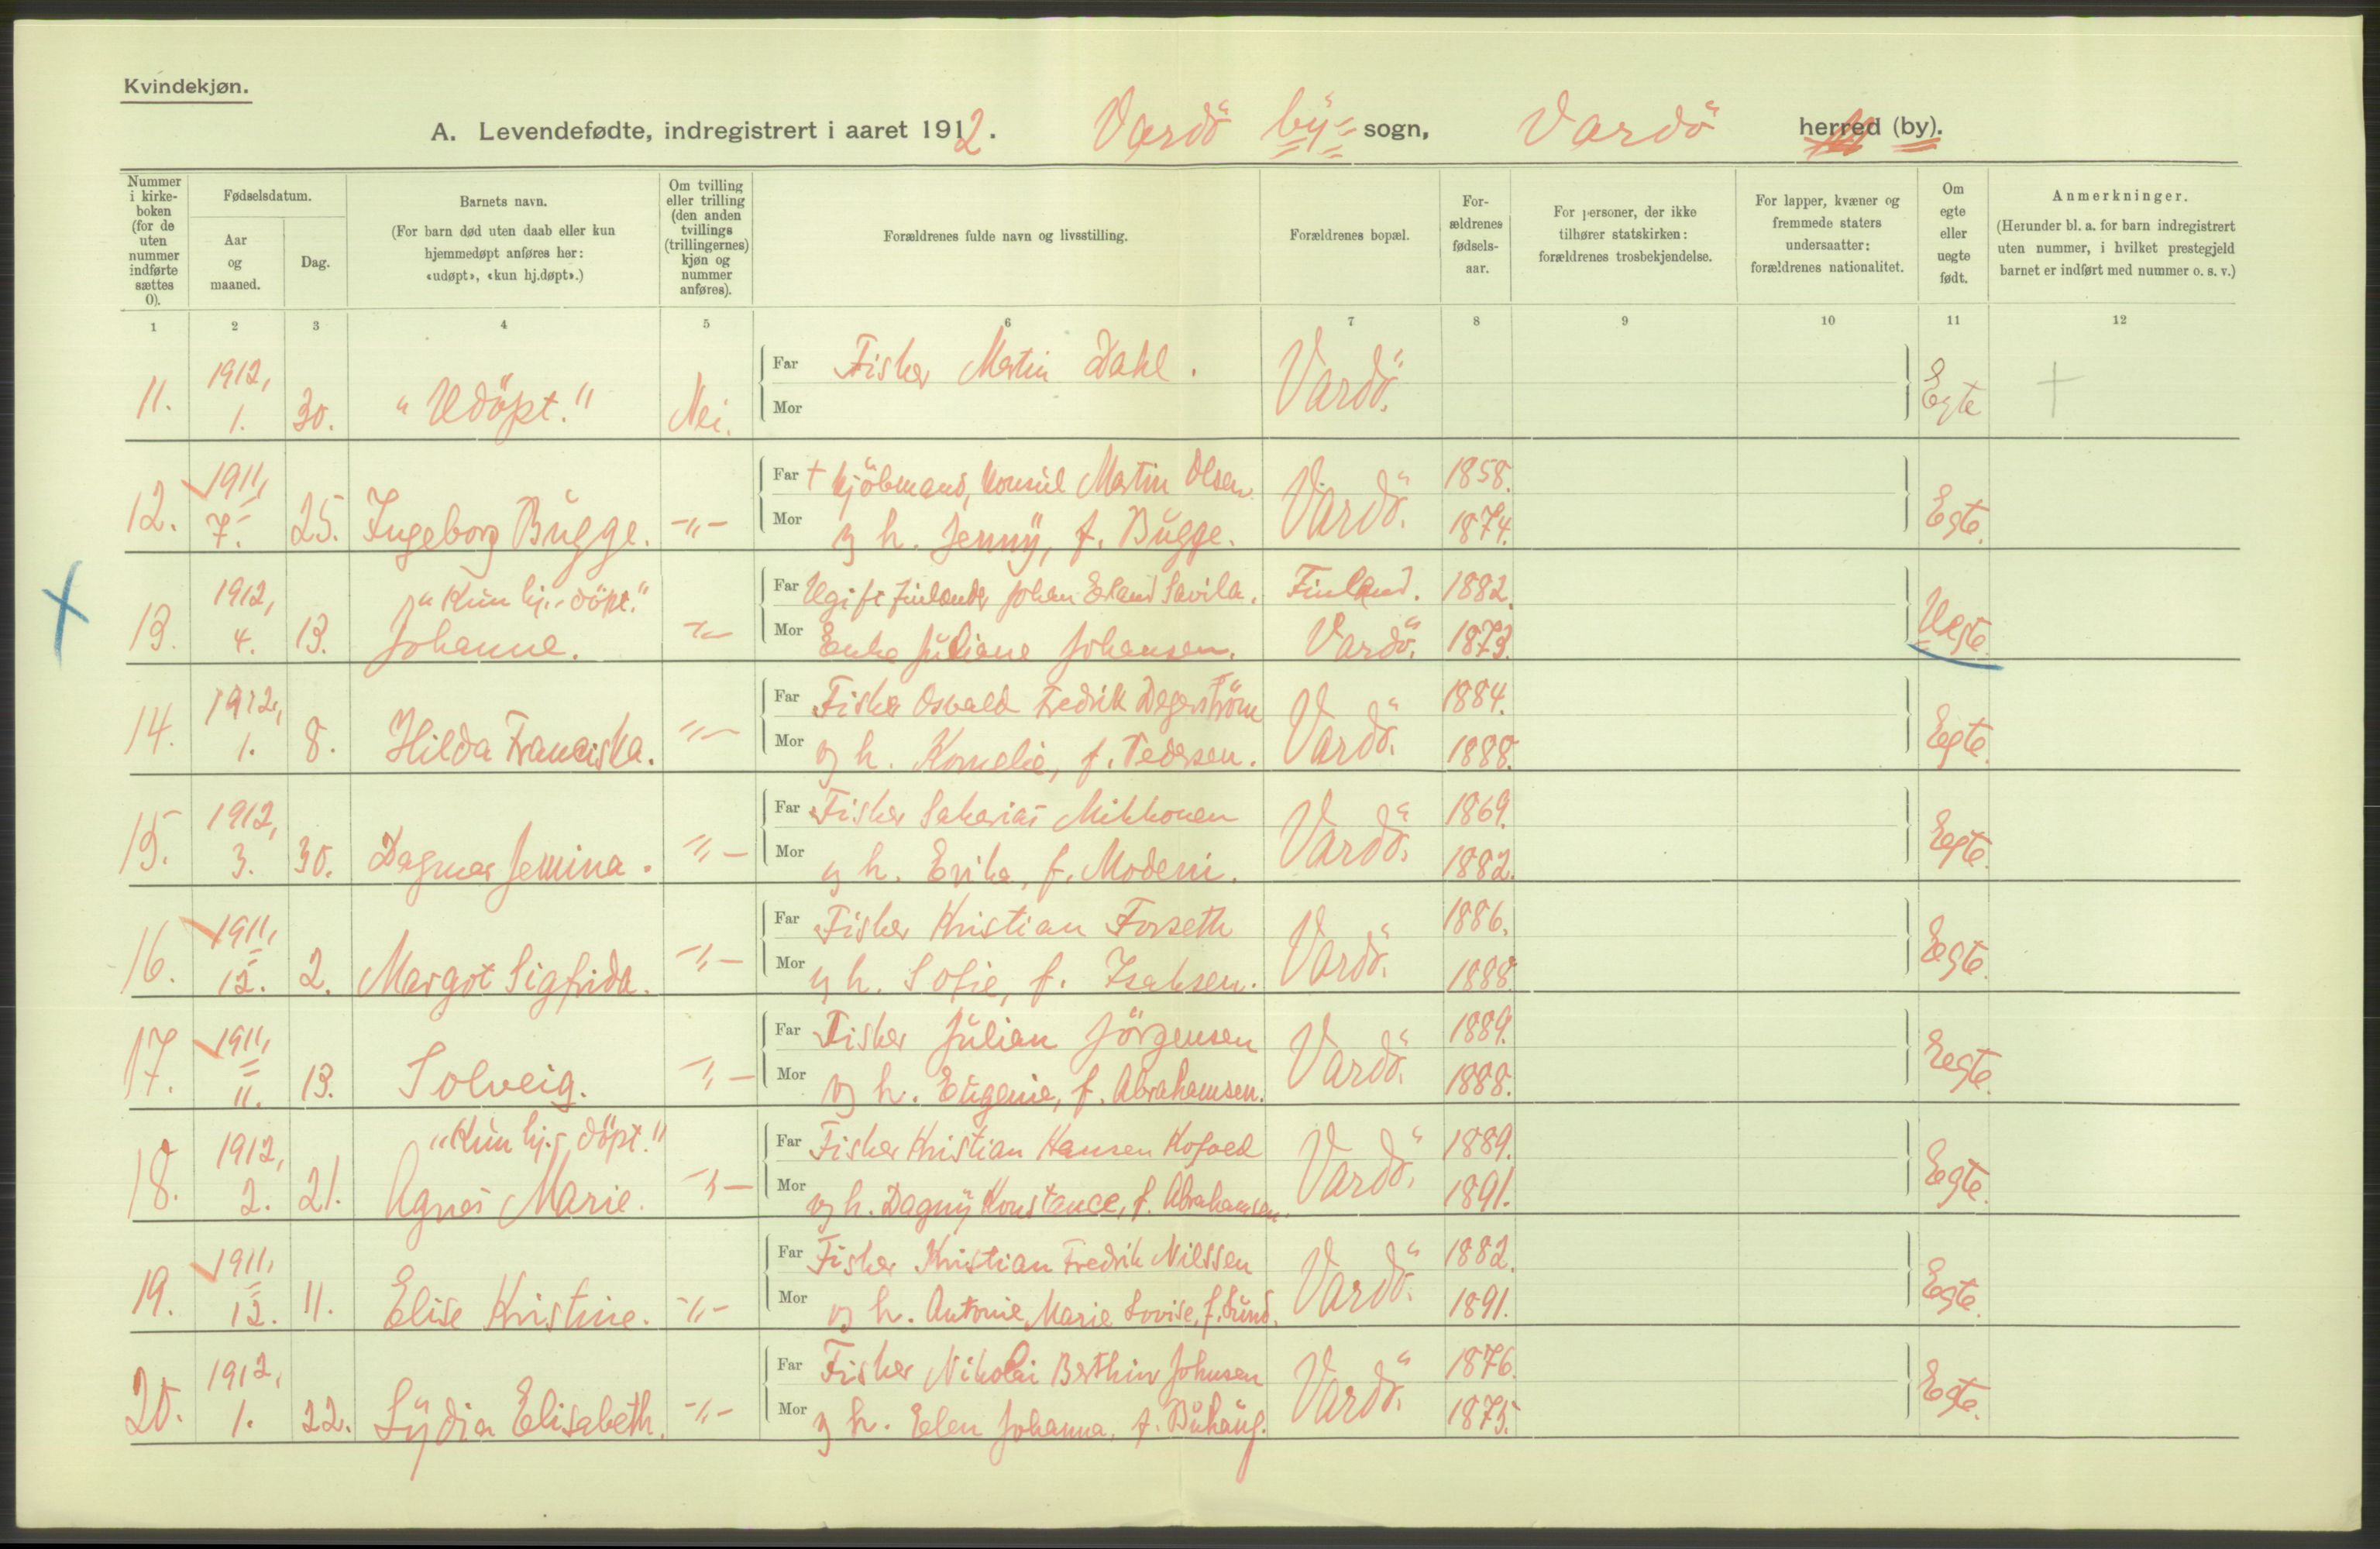 Kvindekjøn.
A. Levendefødte, indregistrert i aaret 1912. Vardö by sogn, Vardö herred (by).
Nummer i kirke-boken (for de uten nummer indførte sættes 0).
Fødselsdatum.
Aar og maaned.
Dag.
Barnets navn.
(For barn død uten daab eller kun hjemmedøpt anføres her: «udøpt», «kun hj.døpt».)
Om tvilling eller trilling (den anden tvillings (trillingernes) kjøn og nummer anføres).
Forældrenes fulde navn og livsstilling.
Forældrenes bopæl.
For-ældrenes fødsels-aar.
For personer, der ikke tilhører statskirken: forældrenes trosbekjendelse.
For lapper, kvæner og fremmede staters undersaatter: forældrenes nationalitet.
Om egte eller uegte født.
Anmerkninger.
(Herunder bl. a. for barn indregistrert uten nummer, i hvilket prestegjeld barnet er indført med nummer o. s. v.)
1 2 3 4 5 6 7 8 9 10 11 12
11. 1912, 1. 30. "Udöpt." Nei. Far Fisker Martin Dahl. Vardö. Egte +
Mor
12. 1911, 7. 25. Ingeborg Bugge. -"- Far + Kjöbmand, Konsul Martin Olsen Vardö. 1858. Egte.
Mor og h. Jenny, f. Bugge. 1874.
13. 1912, 4. 13. "Kun hj.-döpt." Johanne. -"- Far Ugift Finlænder Johan Erland Savila. Finland. 1882. Uegte.
Mor Enke Juliane Johansen. Vardö. 1873.
14. 1912, 1. 8. Hilda Franciska. -"- Far Fisker Osvald Fredrik Degerström Vardö. 1884. Egte.
Mor og h. Kornelie, f. Pedersen. 1888.
15. 1912, 3. 30. Dagmar Jemina. -"- Far Fisker Sakarias Mikkonen Vardö. 1869. Egte.
Mor og h. Erika, f. Modeni. 1882.
16. 1911, 12. 2. Margot Sigfrida. -"- Far Fisker Kristian Forseth Vardö. 1886. Egte.
Mor og h. Sofie, f. Isaksen. 1888.
17. 1911, 11. 13. Solveig. -"- Far Fisker Julian Jörgensen Vardö. 1889. Egte.
Mor og h. Eugenie, f. Abrahamsen. 1888.
18. 1912, 2. 21. "Kun hj.-döpt." Agnes Marie. -"- Far Fisker Kristian Hansen Kofoed Vardö. 1889. Egte.
Mor og h. Dagny Konstance, f. Abrahamsen. 1891.
19. 1911, 12. 11. Elise Kristine. -"- Far Fisker Kristian Fredrik Nilssen Vardö. 1882. Egte.
Mor og h. Antonie Marie Lovise, f. Lund. 1891.
20. 1912, 1. 22. Lydia Elisabeth. -"- Far Fisker Nikolai Berthin Johnsen Vardö. 1876. Egte.
Mor og h. Elen Johanna, f. Buhaug. 1875.